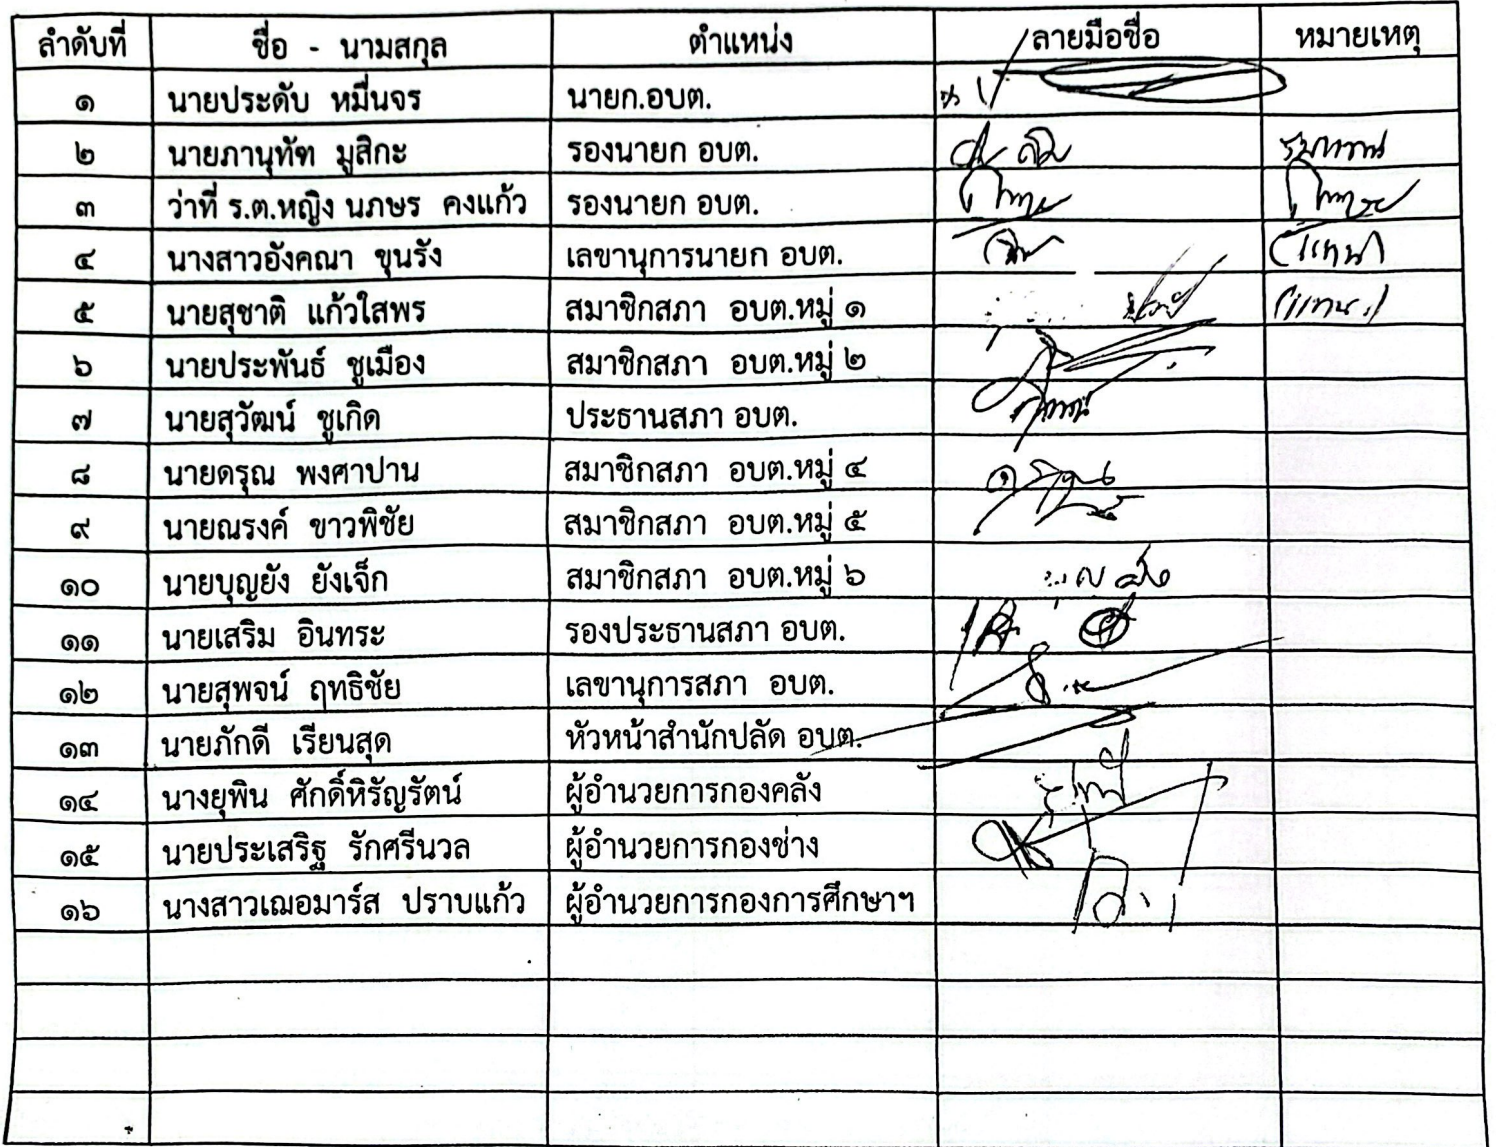 ลำดับที่ ชื่อ - นามสกุล ตำแหน่ง ลายมือชื่อ หมายเหตุ
๑ นายประดับ หมื่นจร นายก.อบต.
๒ นายภานุทัท มูสิกะ รองนายก อบต.
๓ ว่าที่ ร.ต.หญิง นภษร คงแก้ว รองนายก อบต.
๔ นางสาวอังคณา ขุนรัง เลขานุการนายก อบต.
๕ นายสุชาติ แก้วใสพร สมาชิกสภา อบต.หมู่ ๑
๖ นายประพันธ์ ชูเมือง สมาชิกสภา อบต.หมู่ ๒
๗ นายสุวัฒน์ ชูเกิด ประธานสภา อบต.
๘ นายดรุณ พงศาปาน สมาชิกสภา อบต.หมู่ ๔
๙ นายณรงค์ ขาวพิชัย สมาชิกสภา อบต.หมู่ ๕
๑๐ นายบุญยัง ยังเจ็ก สมาชิกสภา อบต.หมู่ ๖
๑๑ นายเสริม อินทระ รองประธานสภา อบต.
๑๒ นายสุพจน์ ฤทธิชัย เลขานุการสภา อบต.
๑๓ นายภักดี เรียนสุด หัวหน้าสำนักปลัด อบต.
๑๔ นางยุพิน ศักดิ์หิรัญรัตน์ ผู้อำนวยการกองคลัง
๑๕ นายประเสริฐ รักศรีนวล ผู้อำนวยการกองช่าง
๑๖ นางสาวเฌอมาร์ส ปราบแก้ว ผู้อำนวยการกองการศึกษาฯ